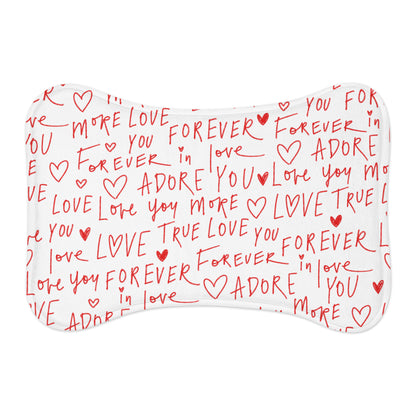 YOU FOR
MORE LOVE FOREVER FOREVER
YOU ADORE
FOREVER in love
ADORE YOU
LOVE Love you MORE LOVE TRUE
YOU LOVE TRUE LOVE YOU FOREVER
Love you FOREVER FOREVER in love
in love ADORE YOU
ADORE MORE
LOVE